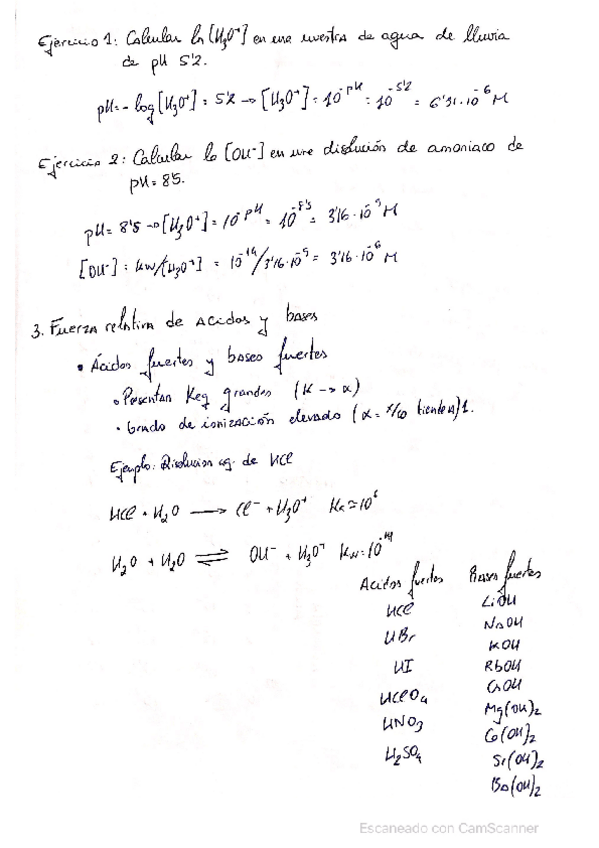 Ejercicio 1: Calcular la [H₃O⁺] en una muestra de agua de lluvia
de pH 5'2.
pH = -log[H₃O⁺] = 5'2 → [H₃O⁺] = 10^-pH = 10^-5'2 = 6'31·10^-6 M
Ejercicio 2: Calcular la [OH⁻] en una disolución de amoniaco de
pH = 8'5.
pH = 8'5 → [H₃O⁺] = 10^-pH = 10^-8'5 = 3'16·10^-9 M
[OH⁻] = Kw/[H₃O⁺] = 10^-14/3'16·10^-9 = 3'16·10^-6 M
3. Fuerza relativa de Acidos y bases
• Ácidos fuertes y bases fuertes
• Presentan Keq grandes (K → ∝)
• Grado de ionización elevado (α = x/c₀ tiende a) 1.
Ejemplo: Disolucion aq. de HCl
HCl + H₂O → Cl⁻ + H₃O⁺ Ka ≈ 10^6
H₂O + H₂O ⇌ OH⁻ + H₃O⁺ Kw = 10^-14
Acidos fuertes
HCl
HBr
HI
HClO₄
HNO₃
H₂SO₄
Bases fuertes
LiOH
NaOH
KOH
RbOH
CsOH
Mg(OH)₂
Ca(OH)₂
Sr(OH)₂
Ba(OH)₂
Escaneado con CamScanner